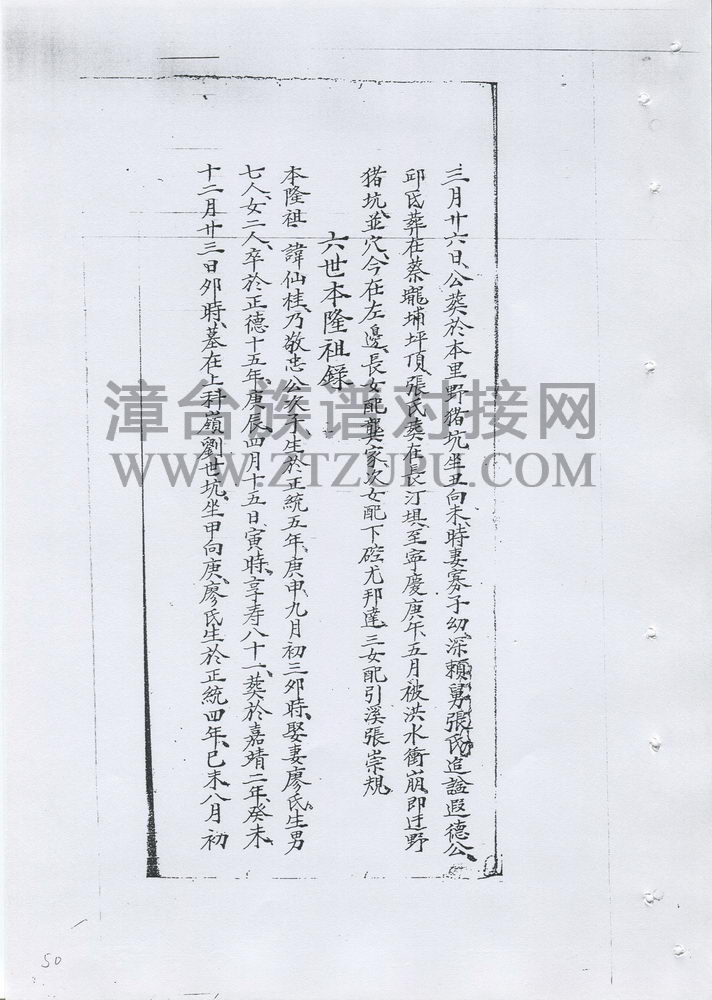 三月廿六日、公葬於本里野猪坑坐丑向未、時妻寡子幼、深賴舅張氏追諡遐德公、
邱氏葬在蔡壠埔坪頂、張氏葬在長汀埧、至寧慶庚午、五月被洪水衝崩、即迁野
猪坑、並穴、今在左邊、長女配龔家、次女配下硿尤邦達、三女配引溪張崇規、
六世本隆祖錄
本隆祖、諱仙桂、乃敬忠公次子、生於正統五年、庚申九月初三夘時、娶妻廖氏、生男
七人、女二人、卒於正德十五年、庚辰、四月十五日寅時、享寿八十一、葬於嘉靖二年、癸未
十二月廿三日夘時、墓在上科嶺劉世坑、坐甲向庚、廖氏生於正統四年、己未八月初
漳台族谱对接网
WWW.ZTZUPU.COM
50